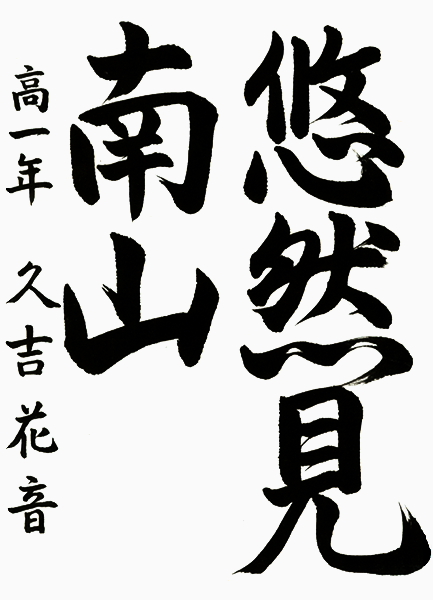 悠然見
南山
高一年 久吉花音